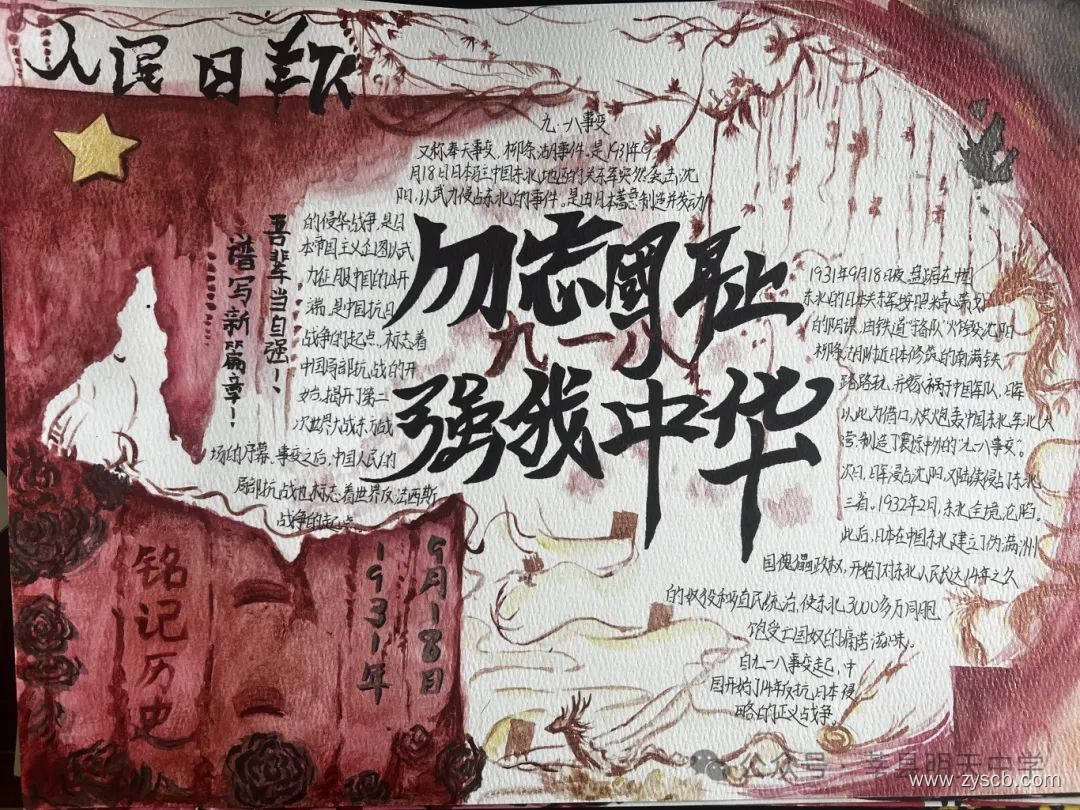 人民日報
九·一八事变
又称奉天事变、柳条湖事件。是1931年9
月18日日本驻中国东北地区的关东军突然袭击沈
阳,以武力侵占东北的事件。是由日本蓄意制造并发动
的侵华战争,是日
本帝国主义企图以武
力征服中国的开
端,是中国抗日
战争的起点,标志着
中国局部抗战的开
始,揭开了第二
次世界大战东方战
场的序幕、事变之后,中国人民的
局部抗战也标志着世界反法西斯
战争的起点
吾辈当自强!、
谱写新篇章!
勿志國耻
九一八
强我中华
1931年9月18日夜,盘踞在中国
东北的日本关东军按照精心策划
的阴谋,由铁道"守备队"炸毁沈阳
柳条湖附近日本修筑的南满铁
路路轨,并嫁祸于中国军队,日军
以此为借口,炮轰中国东北军北大
营,制造了震惊中外的"九一八事变"。
次日,日军侵占沈阳,又陆续侵占东北
三省。1932年2月,东北全境沦陷。
此后,日本在中国东北建立了伪满洲
国傀儡政权,开始了对东北人民长达14年之久
的奴役和殖民统治,使东北3000多万同胞
饱受亡国奴的痛苦滋味。
自九一八事变起,中
国开始了14年反抗日本侵
略的正义战争。
铭记历史
1931年
9月18日
公众号·莘县明天中学
www.zyscb.com